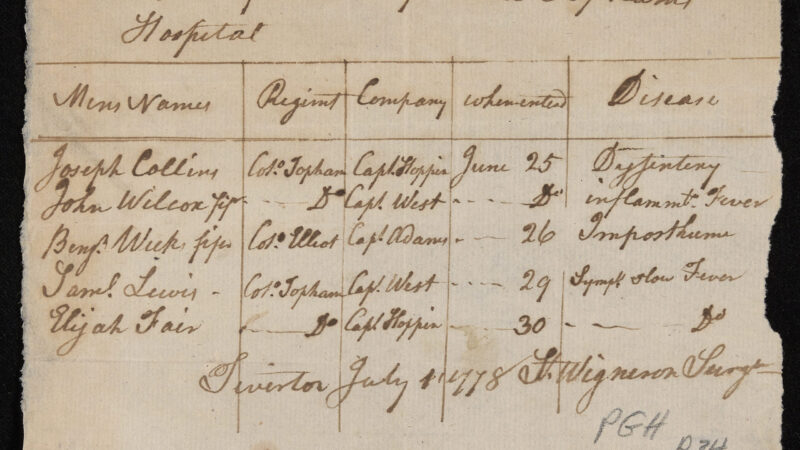 Hospital
Mens Names Regimt Company when entred Disease
Joseph Collins Colo. Topham Capt. Hoppin June 25 Dyssintery
John Wilcox fifr Do Capt. West Do inflammty. Fever
Benjn. Weeks fifer Colo. Elliot Capt. Adams 26 Imposthume
Saml. Lewis Colo. Topham Capt. West 29 Sympt. slow Fever
Elijah Fair Do Capt. Hoppin 30 Do
Tivertor July 1 1778 St. Wigneron Surgn
PGH